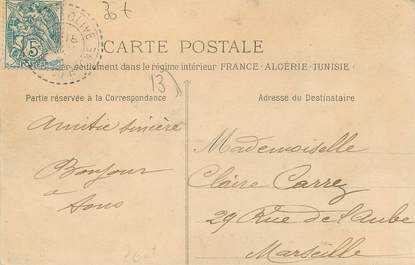 30 +
5
OLIVE
CARTE POSTALE
seulement dans le régime intérieur FRANCE-ALGÉRIE-TUNISIE
13
Partie réservée à la Correspondance
Adresse du Destinataire
Amitié sincère
Bonjour
à
tous
Mademoiselle
Claire Carrez
29 Rue de l'Aube
Marseille